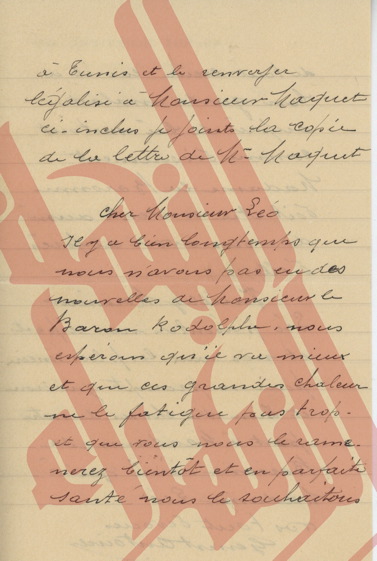 à Tunis et le renvoyer
légalisé à Monsieur Naquet
ci-inclus je joints la copie
de la lettre de Mr Naquet
cher Monsieur Léo
Il y a bien longtemps que
nous n'avons pas eu des
nouvelles de Monsieur le
Baron Rodolphe. nous
espérons qu'il va mieux
et que ces grandes chaleur
ne le fatigue pas trop.
et que vous nous le rame-
nerez bientôt et en parfaite
santé nous le souhaitons